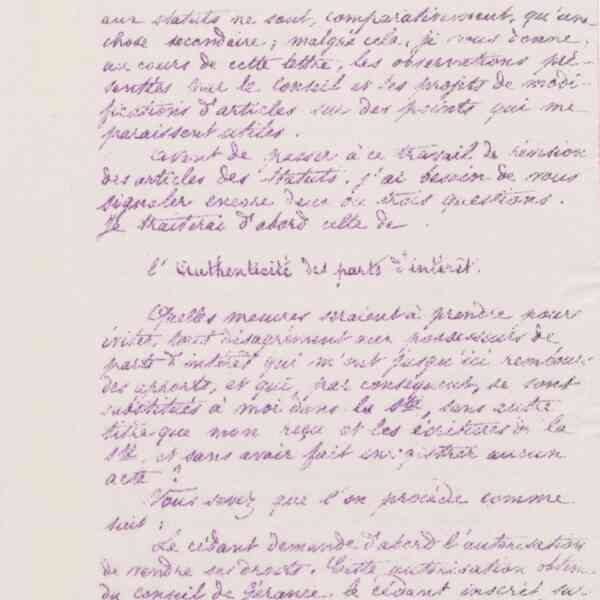 aux statuts ne sont, comparativement, qu'une
chose secondaire; malgré cela, je vous donne,
au cours de cette lettre, les observations pré-
sentées par le Conseil et les projets de modi-
fications d'articles sur des points qui me
paraissent utiles.
Avant de passer à ce travail de révision
des articles des statuts, j'ai besoin de vous
signaler encore deux ou trois questions.
Je traiterai d'abord celle de
l'authenticité des parts d'intérêt.
Quelles mesures seraient à prendre pour
éviter tout désagrément aux possesseurs de
parts d'intérêt qui m'ont jusqu'ici remboursé
des apports, et qui, par conséquent, se sont
substitués à moi dans la Sté, sans autre
titre que mon reçu et les écritures de la
Sté, et sans avoir fait enregistrer aucun
acte?
Vous savez que l'on procède comme
suit:
Le cédant demande d'abord l'autorisation
de vendre ses droits. Cette autorisation obtenue
du Conseil de Gérance, le cédant inscrit sa